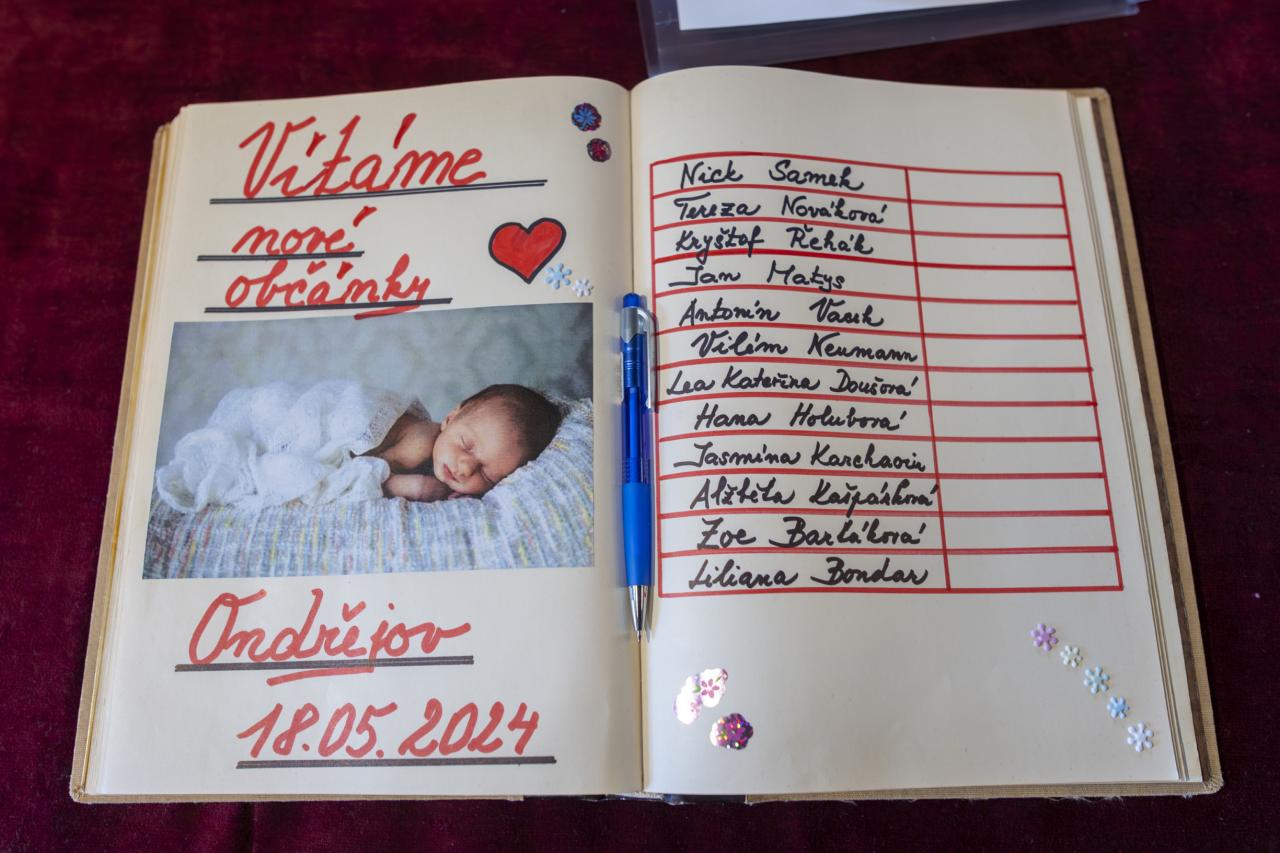 Vítáme
nové
občánky
Ondřejov
18.05.2024
Nick Samek
Tereza Nováková
Kryštof Řehák
Jan Matys
Antonín Vacek
Vilém Neumann
Lea Kateřina Doušová
Hana Holubová
Jasmína
Alžběta Kašpárková
Zoe Bartáková
Liliana Bondar